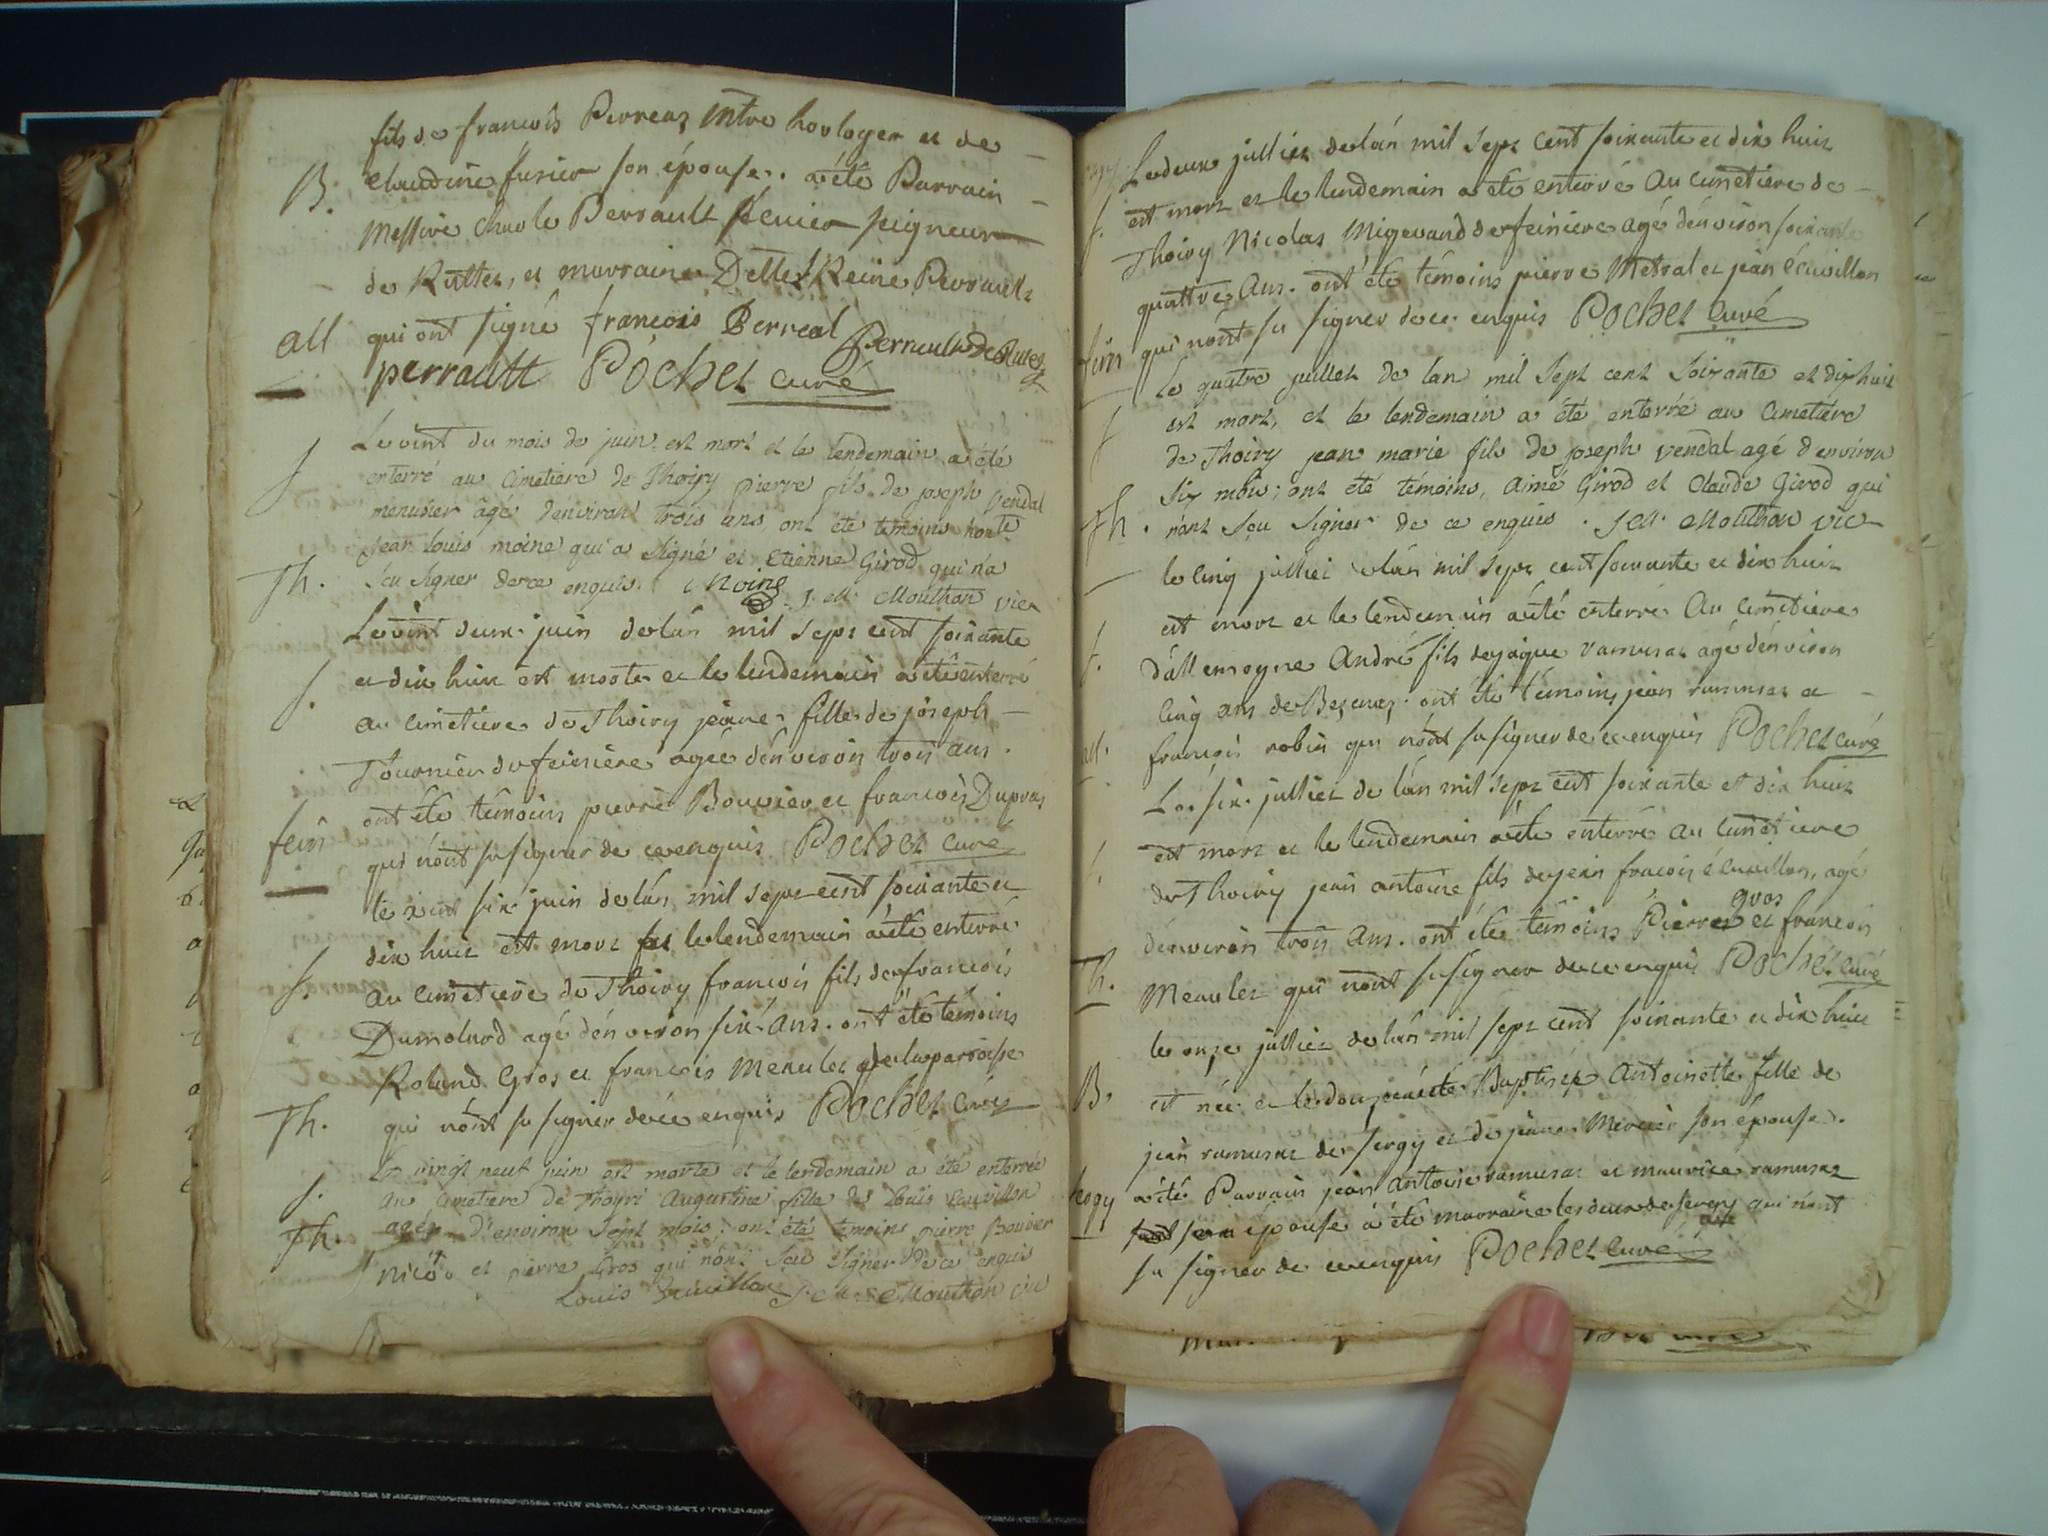 fils de françois Perreaz mtre horloger et de
B. Claudine fusier son épouse. a été Parrain
Messire Charle Perrault fenier seigneur
de Rutter, et marraine Delle Reine Perrault
all qui ont signé françois Perreal
perrault Pochet curé Perrault de Ruter
Le vint du mois de juin est mort et le lendemain a été
enterré au cimetiere de Thoiry pierre fils de joseph vendal
menusier agé d'environ trois ans, ont été temoins honte
jean louis moine qui a signé et Etienne Girod qui n'a
Th. Sçu signer de ce enquis. Moine J. M. Mouthon vic
Le vint deux juin de lán mil sept cent soixante
f. et dix huit est morte et le lendemain a été enterré
au cimetiere de Thoiry jeanne fille de joseph
Tournier de feiniere agée dénviron trois ans.
ont été témoins pierre Bouvier et françois Dupraz
fein qui nónt su signer de ce enquis Pochet curé
le vint six juin de lán mil sept cent soixante et
dix huit est mort et le lendemain a été enterré
f. au cimetiere de Thoiry françois fils de françois
Dumolard agé dénviron six ans. ont été témoins
Roland Gros et françois Meaulet de la parroisse
Th. qui nónt su signer de ce enquis Pochet curé
Le vingt neuf juin est morte et le lendemain a été enterrée
f. au cimetiere de Thoyri Augustine fille de Loüis Ecuvillon
Th. agée d'environ Sept mois; ont été temoins pierre Bouvier
et pierre Gros qui nont Sçu Signer de ce enquis
Louis Ecuvillon J. M. Mouthon vic
Le deux jullier de lán mil sept cent soixante et dix huit
f. est mort et le lendemain a été enterré au cimetiere de
Thoiry Nicolas Migerand de feiniere agé dénviron soixante
quattre ans. ont été témoins pierre Metral et jean Ecuvillon
fein qui nónt su signer de ce enquis Pochet curé
Le quatre juillet de lan mil sept cent soixante et dix huit
f est mort, et le lendemain a été enterré au cimetiére
de Thoiry jean marie fils de joseph vendal agé d'environ
six mois; ont été témoins, Aimé Girod et Claude Girod qui
Th. n'ont Sçu Signer de ce enquis. J M. Mouthon vic
le cinq jullier de lán mil sept cent soixante et dix huit
est mort et le lendemain a été enterré au cimetiere
f. dállemogne André fils de jâque ramusat agé dénviron
cinq ans de Beçenez. ont été témoins jean ramusat et
all. françois robin qui nónt su signer de ce enquis Pochet curé
Le six jullier de lán mil sept cent soixante et dix huit
f. est mort et le lendemain a été enterré au cimetiere
de Thoiry jean antoine fils de jean françois écuvillon, agé
dénviron trois ans. ont été témoins Pierre gros et françois
Th. Meaulet qui nónt su signer de ce enquis Pochet curé
le onze jullier de lán mil sept cent soixante et dix huit
B. est née et le douze a été Baptisée Antoinette fille de
jean ramusat de sergy et de jeanne Mercier son épouse.
sergy a été Parrain jean antoine ramusat et maurice ramusat
son épouse a été marraine les deux de sergy qui nónt
su signer de ce enquis Pochet curé